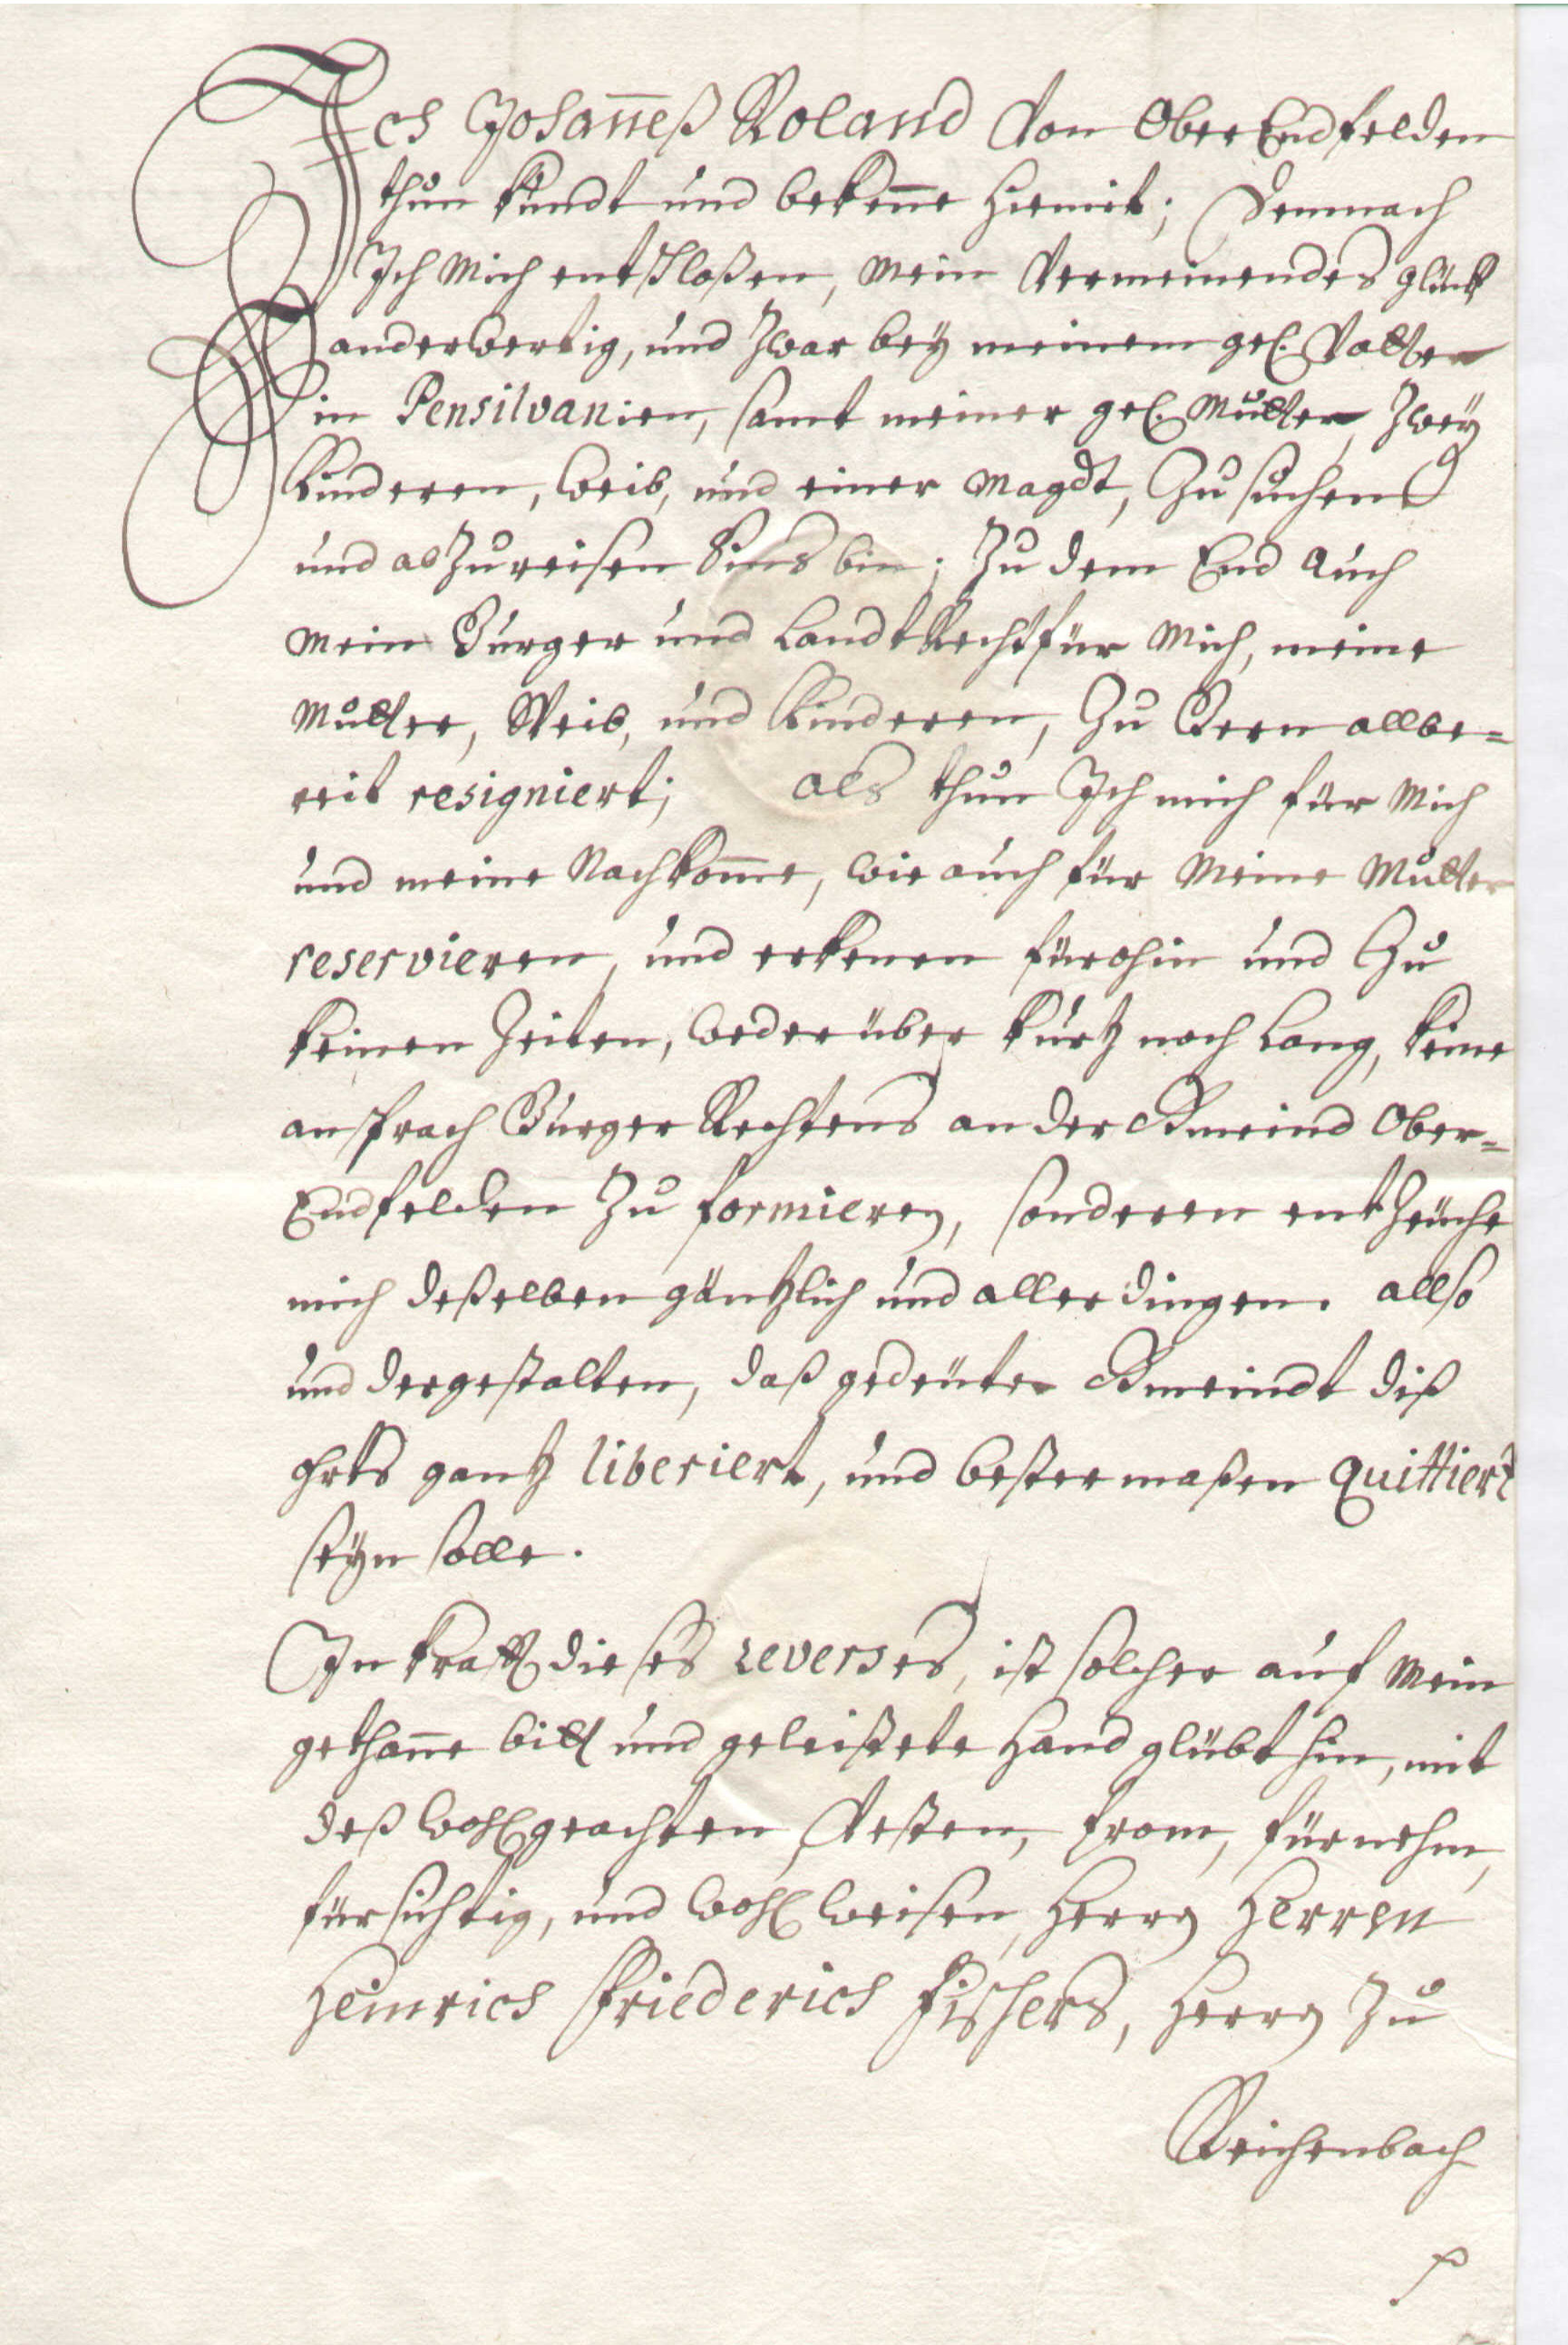 Ich Johan̄eß Roland Von OberEndfelden
thun kundt und beken̄e hiemit; Demnach
Ich Mich entschloßen, mein Vermeinendes glück
anderwertig, und zwar bey meinem gel. Vatter
in Pensilvanien, samt meiner gel. Mutter, zwey
Kinderen, weib, und einer Magdt, Zu suchen
und abzureisen Sins bin; zu dem End Auch
mein Burger und LandtRecht für Mich, meine
Mutter, Weib, und Kinderen, Zu Bern allbe=
reit resigniert; als thun Ich mich für Mich
und meine Nachkom̄e, wie auch für Meine Mutter
reservieren, und erkenen fürohin und Zu
keinen Zeiten, weder über kurtz noch Lang, keine
ansprach Burger Rechtens an der Gmeind Ober=
Endfelden zu formieren, sonderen entzeüche
mich deßelben gäntzlich und aller dingen. allso
und dergestalten, daß gedeüte Gmeindt diß
ohrts gantz liberiert, und bestermaßen quittiert
seyn solle.
In krafft dieses reverses, ist solcher auf Mein
gethan̄e bitt und geleistete Hand glübt hin, mit
deß wohlgeachten, Vesten, from, fürnehm,
fürsichtig, und wohl weisen, Herrn Herren
Heinrich Friederich Fischers, Herrn zu
Reichenbach